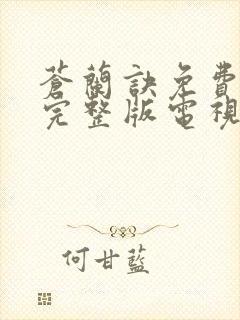 蒼蘭訣免費
完整版電視
何甘藍